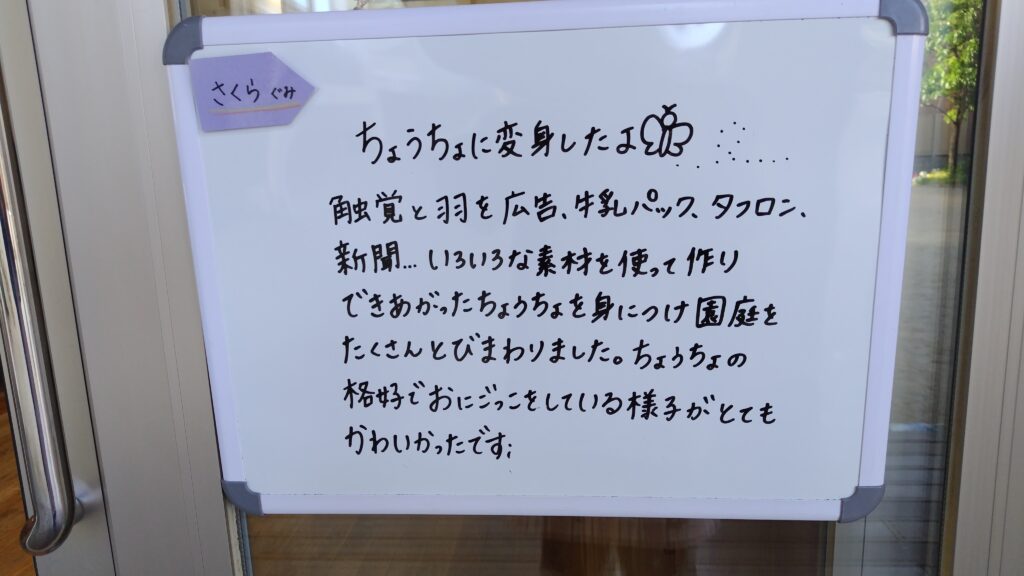 さくらぐみ
ちょうちょに変身したよ
触覚と羽を広告、牛乳パック、タフロン、
新聞…いろいろな素材を使って作り
できあがったちょうちょを身につけ園庭を
たくさんとびまわりました。ちょうちょの
格好でおにごっこをしている様子がとても
かわいかったです;